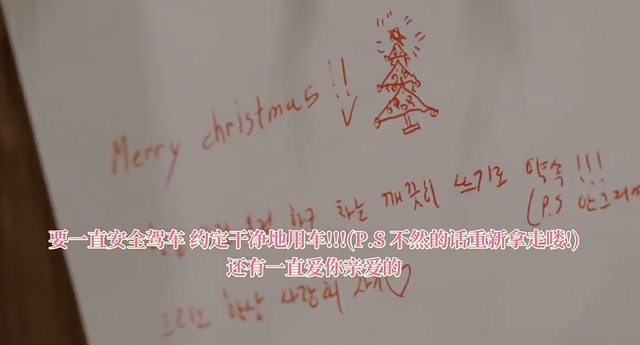 Merry christmas!!
하구 차는 깨끗히 쓰기로 약속!!!
(P.S 안그러면
要一直安全驾车 约定干净地用车!!!(P.S 不然的话重新拿走喽!)
还有一直爱你亲爱的
그리고 항상 사랑해 자기♡